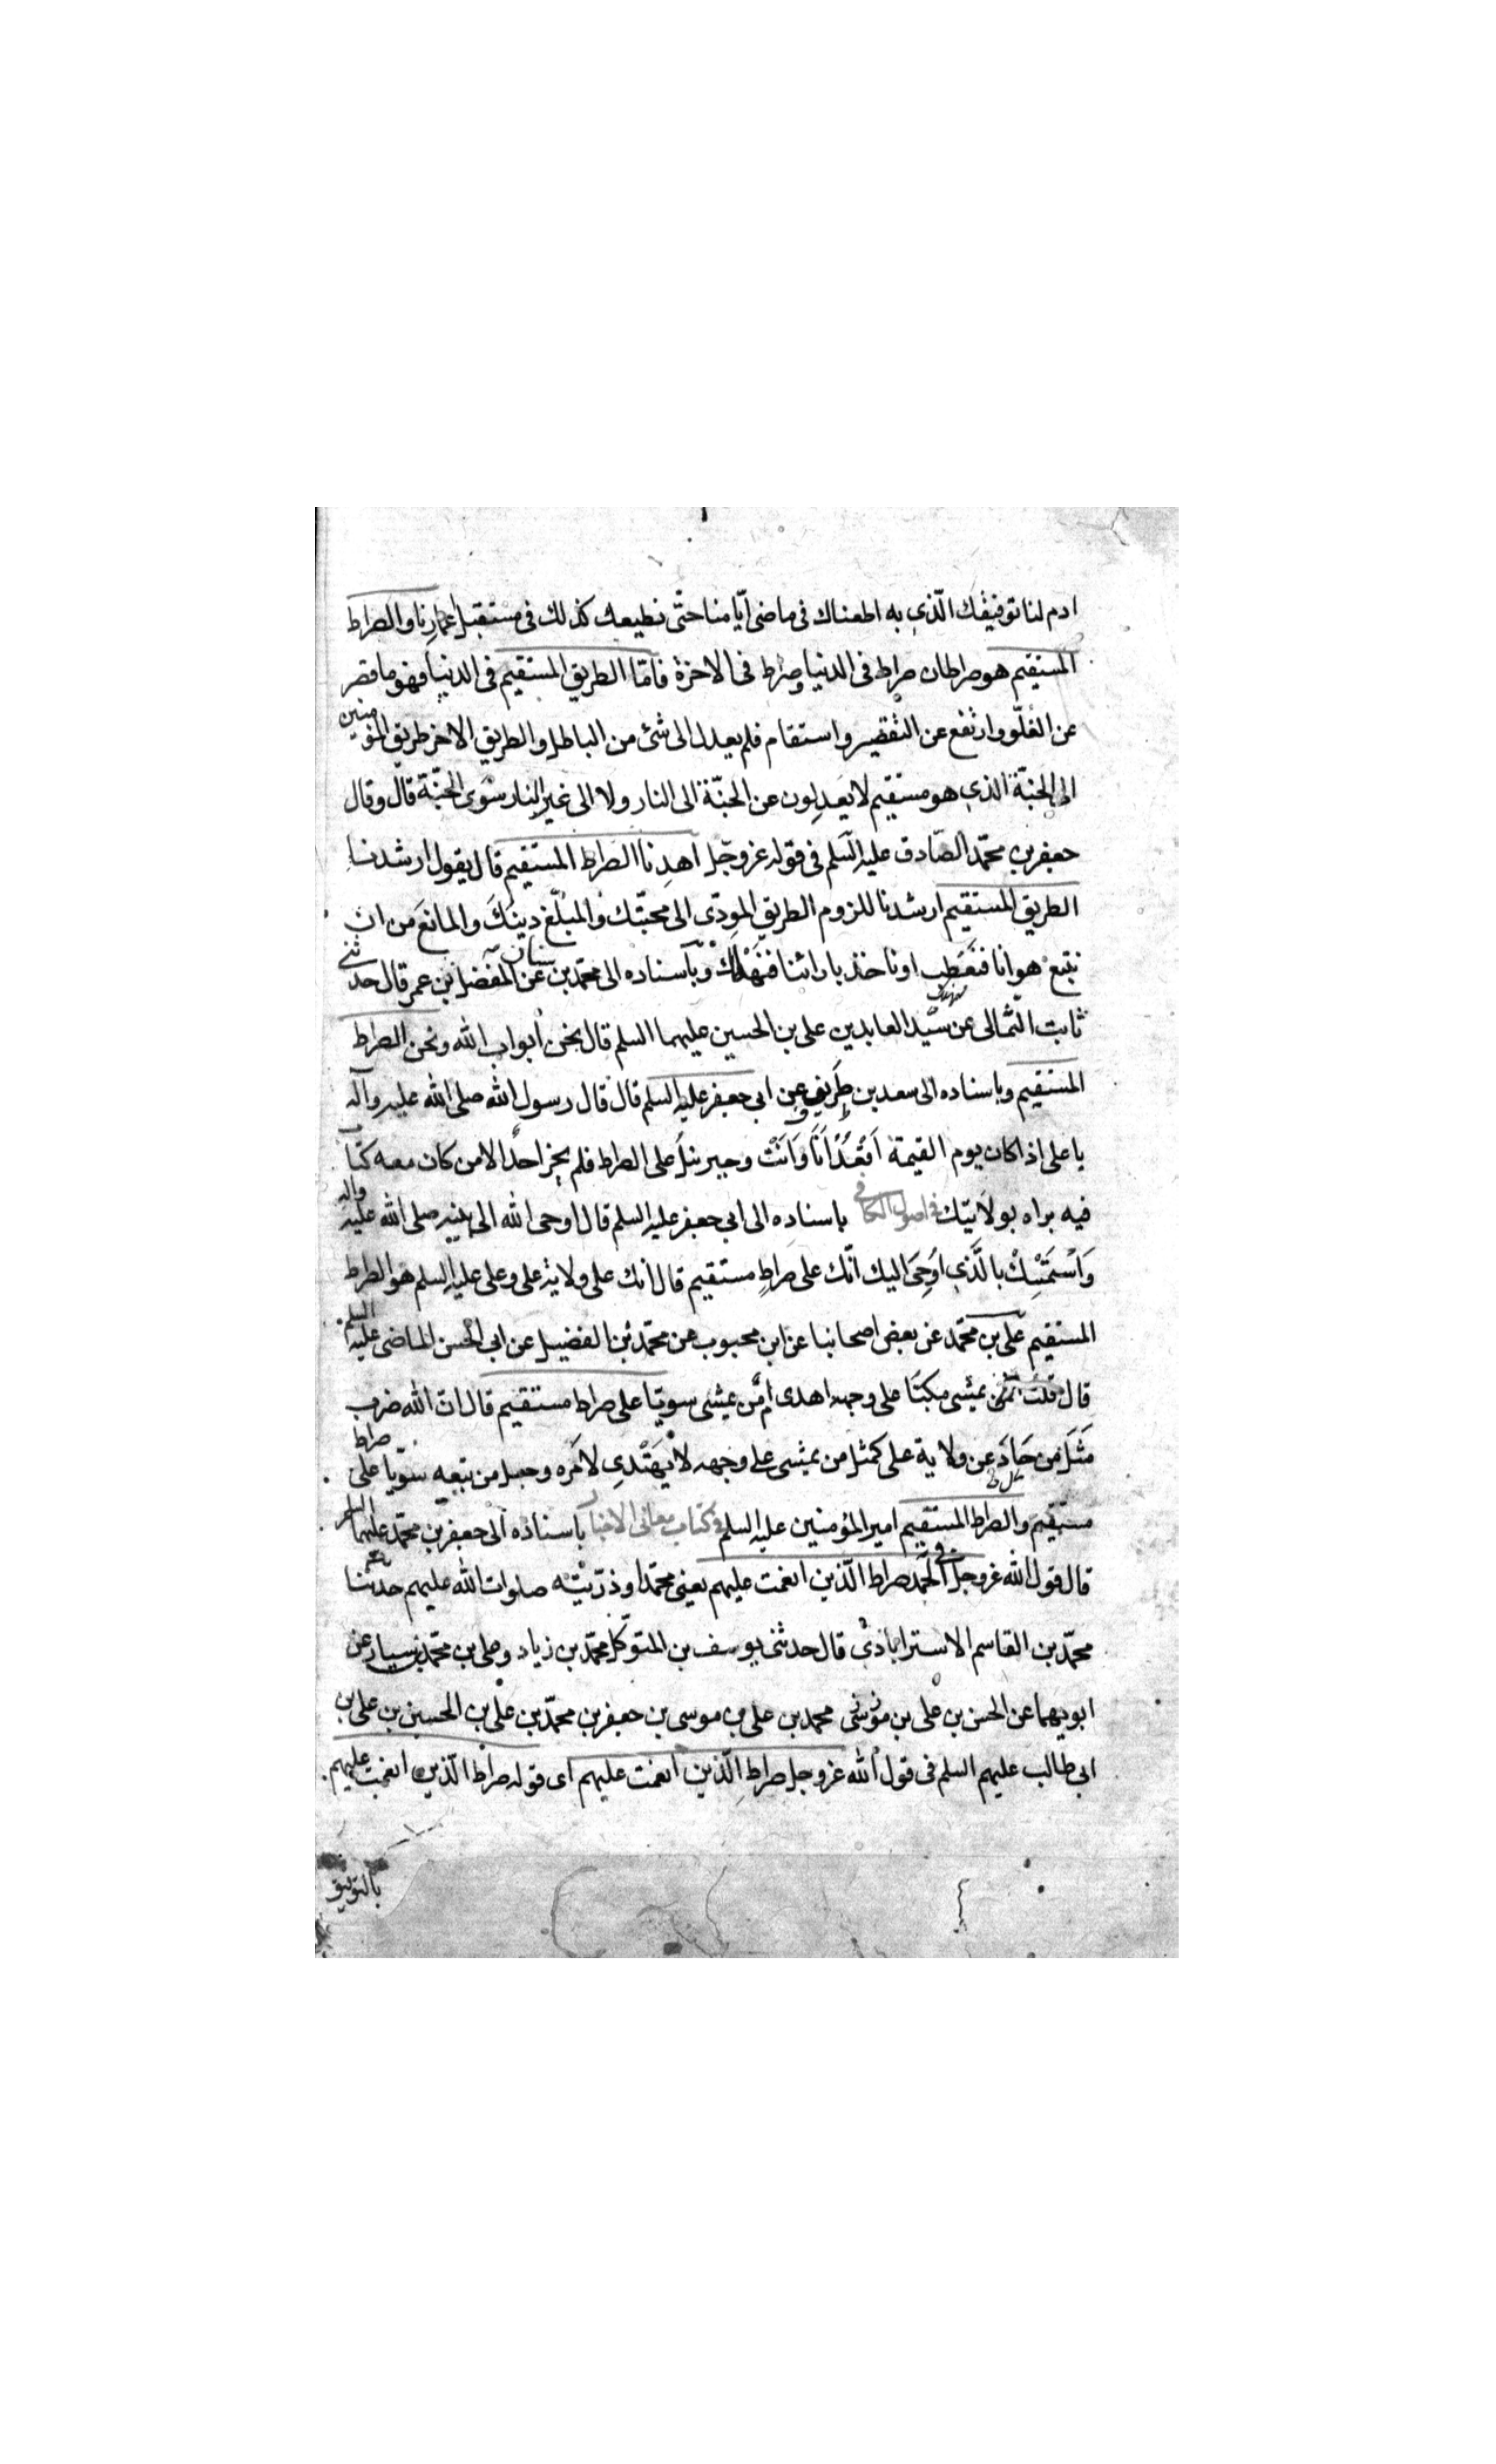 ادم لنا توفيقك الّذى به اطعناك فى ماضى ايّامنا حتّى نطيعك كذلك فى مستقبل اعمارنا والصراط
المستقيم هو صراطان صراط فى الدنيا وصراط فى الاخرة فامّا الطريق المستقيم فى الدنيا فهو ما قصر
عن الغلّو وارتفع عن التقصير واستقام فلم يعدل الى شئ من الباطل والطريق الاخر طريق المؤمنين
الى الجنّة الذى هو مستقيم لا يعدلون عن الجنّة الى النار ولا الى غير النار سوى الجنّة قال وقال
جعفر بن محمّد الصّادق عليه السّلم فى قوله عزوجّل اهدنا الصراط المستقيم قال يقول ارشدنا
الطريق المستقيم ارشدنا للزوم الطريق المودّى الى محبّتك والمبلّغ دينك والمانع من ان
نتبع هوانا فنعطب او ناخذ بارائنا فنهلك وباسناده الى محمّد بن سنان عن المفضل بن عمر قال حدثنى
ثابت الثمالى عن سيّد العابدين على بن الحسين عليهما السلم قال نحن ابواب الله ونحن الصراط
المستقيم وباسناده الى سعد بن طريف عن ابى جعفر عليه السلم قال قال رسول الله صلى الله عليه وآله
يا على اذا كان يوم القيمة اقعد انا وانت وجبرئيل على الصراط فلم يجز احدا الا من كان معه كتاب
فيه براه بولايتك فى اصول الكافى باسناده الى ابى جعفر عليه السلم قال اوحى الله الى نبيه صلى الله عليه واله
وَاسْتَمْسِكْ بالَّذى اُوحِىَ اليك انّك على صراطٍ مستقيم قال انك على ولاية على وعلى عليه السلم هو الصراط
المستقيم على بن محمّد عن بعض اصحابنا عن ابن محبوب عن محمّد بن الفضيل عن ابى الحسن الماضى عليه السلم
قال قلت افمن يمشى مكبّا على وجهه اهدى امّن يمشى سويّا على صراط مستقيم قال ان الله ضرب
مَثَلَ من حَادَ عن ولاية على كمثل من يمشى على وجهه لا يَهْتَدِى لامره وجعل من تبعه سويّا على صراط
مستقيم والصراط المستقيم امير المؤمنين عليه السلم فى كتاب معانى الاخبار باسناده الى جعفر بن محمّد عليهما السلم
قال قول الله عزوجل فى الحمد صراط الّذين انعمت عليهم يعنى محمّدا وذرّيّته صلوات الله عليهم حدثنا
محمّد بن القاسم الاسترابادى قال حدثنى يوسف بن المتوكّل محمّد بن زياد وعلى بن محمّد بن سيار عن
ابويهما عن الحسن بن على بن محمد بن على بن موسى بن جعفر بن محمّد بن على بن الحسين بن على بن
ابى طالب عليهم السلم فى قول الله عزوجل صراط الّذين انعمت عليهم اى قوله صراط الّذين انعمت عليهم
بالتوفيق